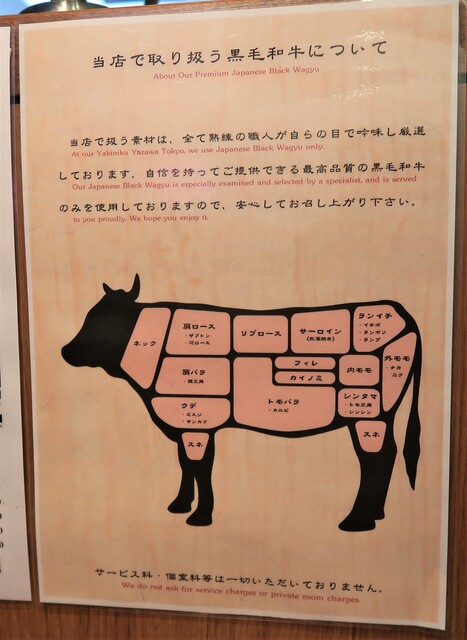 当店で取り扱う黒毛和牛について
About Our Premium Japanese Black Wagyu
当店で扱う素材は、全て熟練の職人が自らの目で吟味し厳選
At our Yakiniku Yazawa Tokyo, we use Japanese Black Wagyu only.
しております。自信を持ってご提供できる最高品質の黒毛和牛
Our Japanese Black Wagyu is especially examined and selected by a specialist, and is served
のみを使用しておりますので、安心してお召し上がり下さい。
to you proudly. We hope you enjoy it.
ネック
肩ロース
・ザブトン
リブロース
サーロイン
ランイチ
・イチボ
・ランボソ
・ランプ
肩バラ
・肩三角
フィレ
カイノミ
内モモ
外モモ
・ナカ
ニク
ウデ
・ミスジ
・サンカク
トモバラ
・カルビ
レンタマ
・トモ三角
・レンシン
スネ
スネ
サービス料・個室料等は一切いただいておりません。
We do not ask for service charges or private room charges.